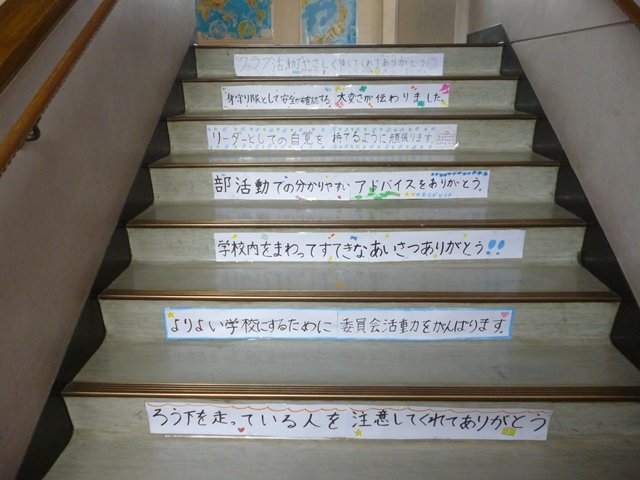 クラブ活動でやさしく接してくれてありがとう
見守り隊として安全を確認する 大変さが伝わりました。
リーダーとしての自覚を 持てるように頑張ります。
部活動での分かりやすい アドバイスをありがとう。
学校内をまわってすてきな あいさつありがとう!!
よりよい学校にするために 委員会活動をがんばります。
ろう下を走っている人を 注意してくれてありがとう